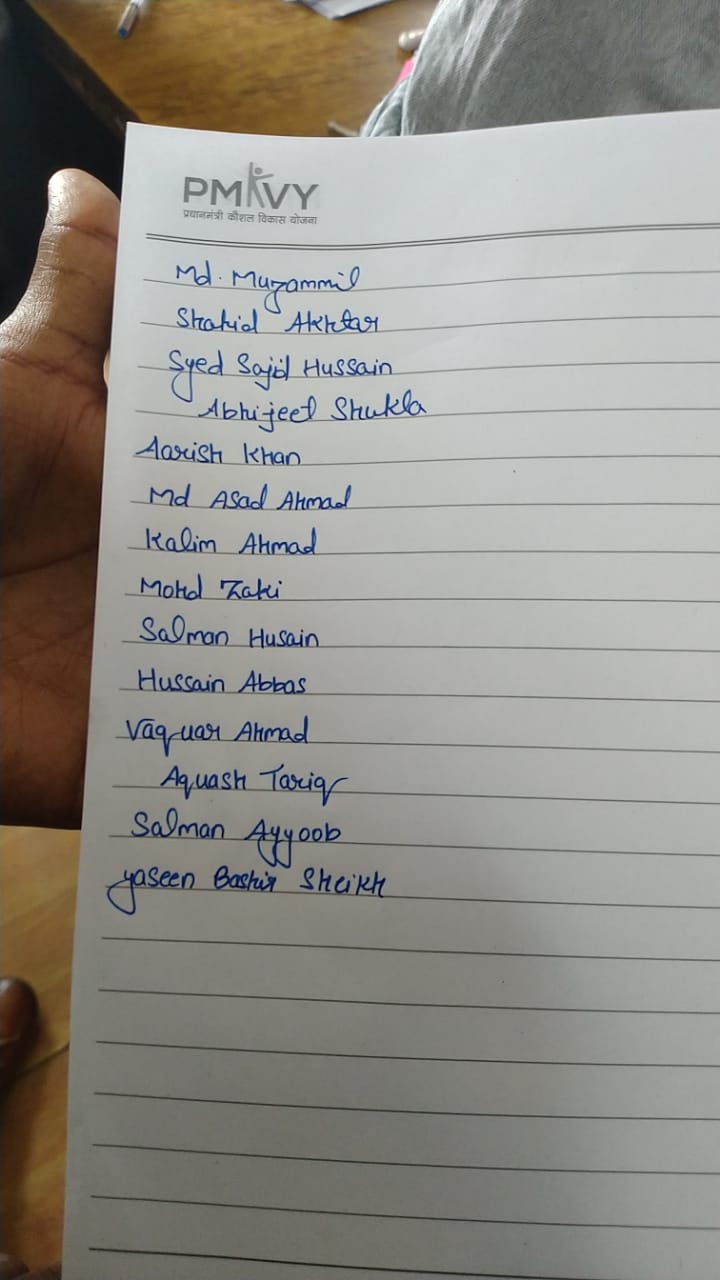 PMKVY
प्रधानमंत्री कौशल विकास योजना
Md. Muzammil
Shahid Akhtar
Syed Sajid Hussain
Abhijeet Shukla
Aarish Khan
Md Asad Ahmad
Kalim Ahmad
Mohd Zaki
Salman Husain
Hussain Abbas
Vaquar Ahmad
Aquash Tariq
Salman Ayyoob
yaseen Bashir Sheikh